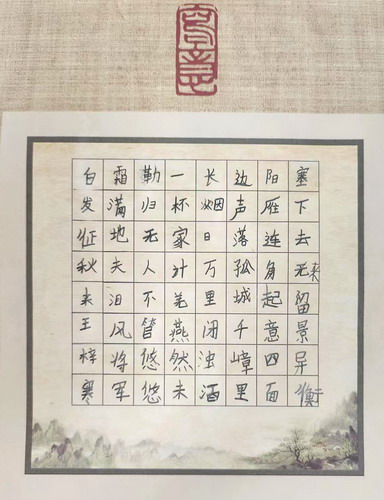 塞下去无来留景异衡
阳雁连角起意四面
边声落孤城千嶂里
长烟日万里闭浊酒
一杯家计羌燕然未
勒归无人不管悠悠
霜满地夫泪风将军
白发征秋来王梓寒